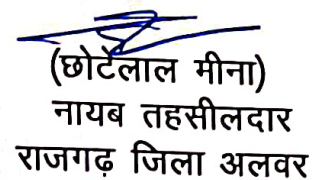 (छोटेलाल मीना)
नायब तहसीलदार
राजगढ़ जिला अलवर